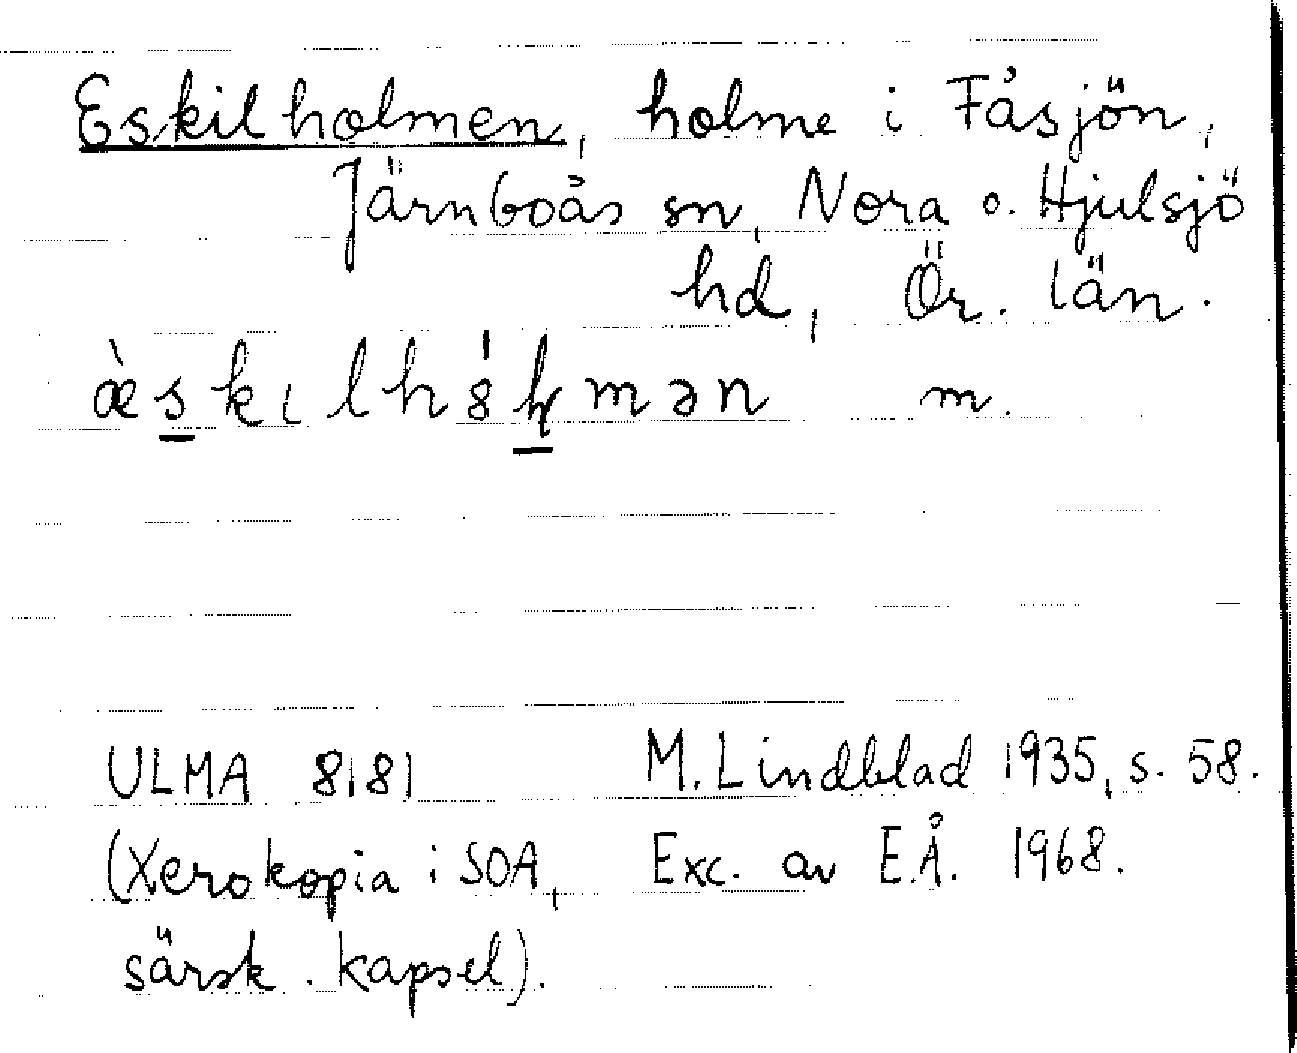 Eskilholmen, holme i Fåsjön,
Järnboås sn, Nora o. Hjulsjö
hd, Ör. län.
m.
ULMA 8181 M. Lindblad 1935, s. 58.
(Xerokopia i SOA, Exc. av E.Å. 1968.
särsk. kapsel).